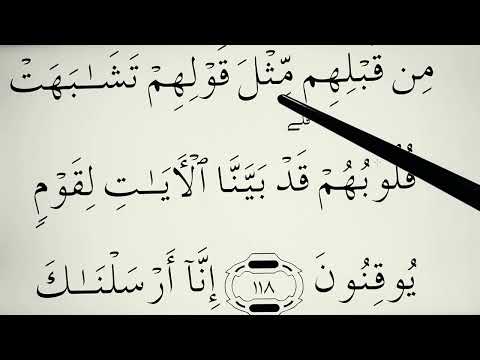 مِن قَبْلِهِم مِّثْلَ قَوْلِهِمْ تَشَـٰبَهَتْ
قلے
قُلُوبُهُمْ قَدْ بَيَّنَّا ٱلْأَيَـٰتِ لِقَوْمٍ
يُوقِنُونَ ١١٨ إِنَّآ أَرْسَلْنَـٰكَ